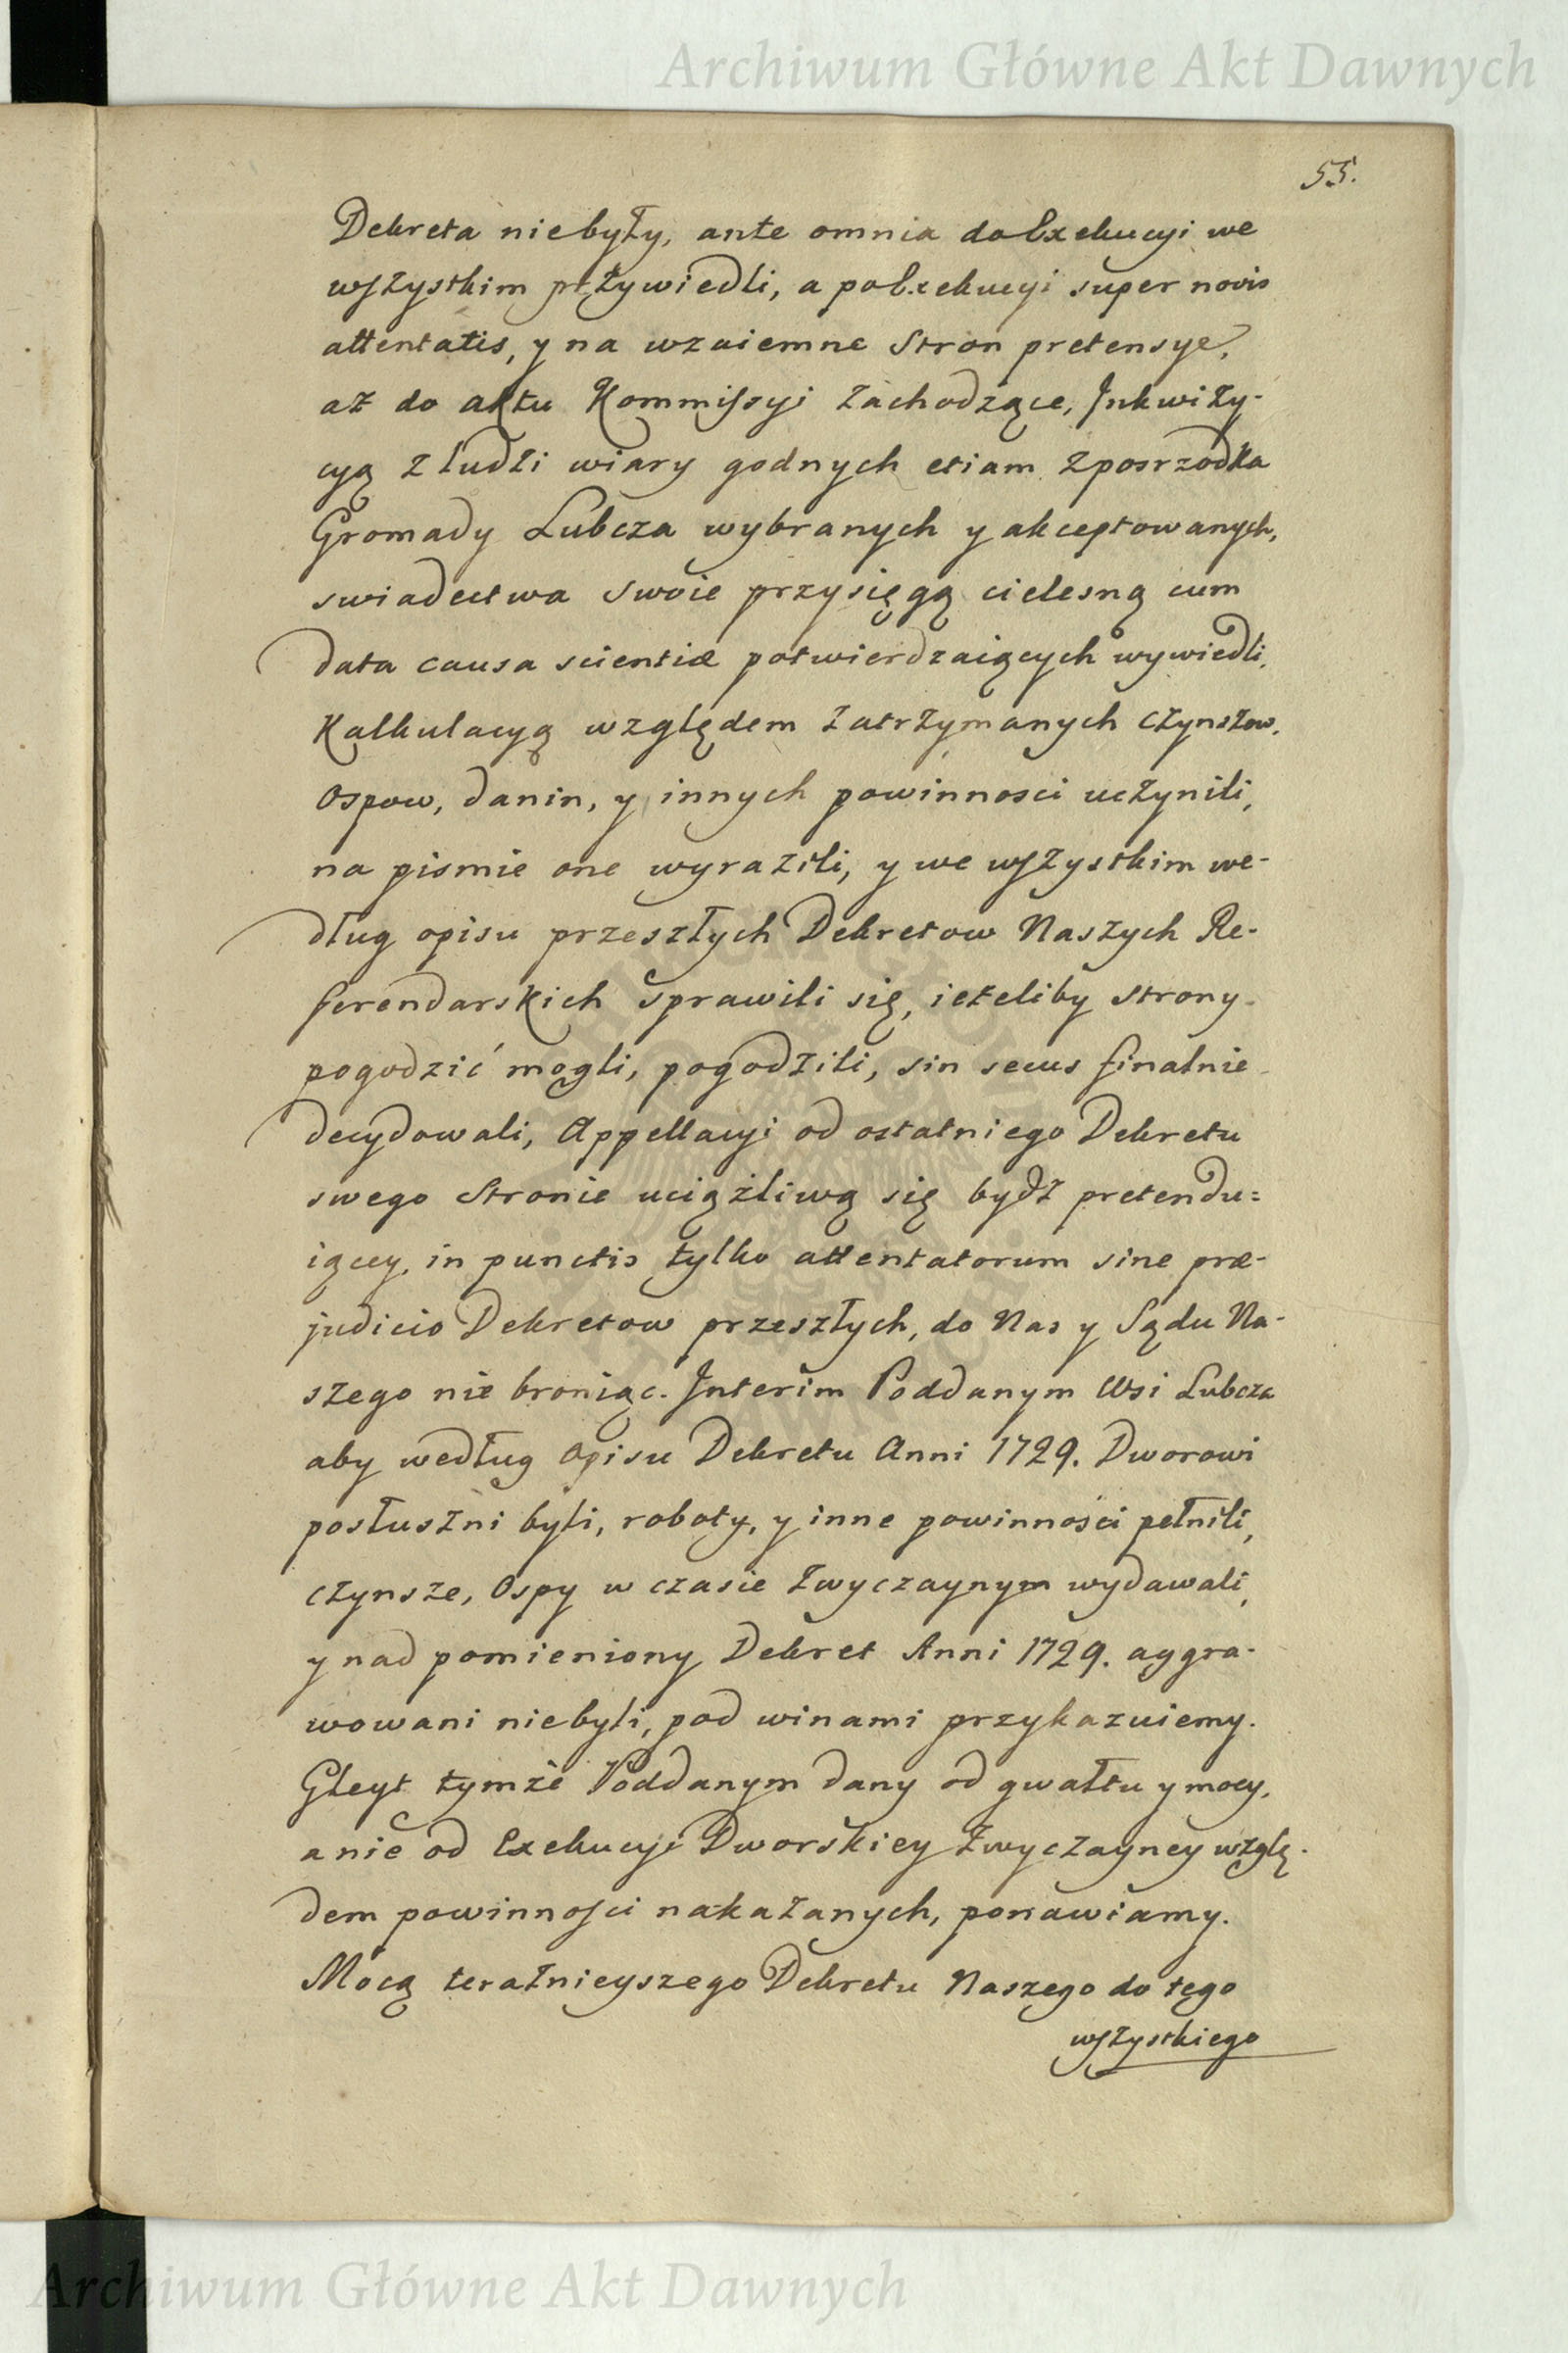 Archiwum Główne Akt Dawnych
55.
Dekreta niebyły, ante omnia do Exekucyi we
wszystkim przywiedli, a po Exekucyi super novis
attentatis, y na wzaiemne Stron pretensye,
aż do aktu Kommissyi zachodzące, Inkwizy-
cyą z ludzi wiary godnych etiam z posrzodka
Gromady Lubcza wybranych y akceptowanych,
swiadectwa swoie przysięgą cielesną cum
data causa scientiæ potwierdzaiących wywiedli,
Kalkulacyą względem zatrzymanych czynszow,
Ospow, danin, y innych powinnosci uczynili,
na pismie one wyrazili, y we wszystkim we-
dług opisu przeszłych Dekretow Naszych Re-
ferendarskich sprawili się, ieżeliby strony
pogodzić mogli, pogodzili, sin secus finalnie
decydowali, Appellacyi od ostatniego Dekretu
swego Stronie uciążliwą się bydź pretendu=
iącey, in punctis tylko attentatorum sine præ-
judicio Dekretow przeszłych, do Nas y Sądu Na-
szego nie broniąc. Interim Poddanym Wsi Lubcza
aby według Opisu Dekretu Anni 1729. Dworowi
posłuszni byli, roboty, y inne powinności pełnili,
czynsze, Ospy w czasie zwyczaynym wydawali,
y nad pomieniony Dekret Anni 1729. aggra-
wowani niebyli, pod winami przykazuiemy.
Gleyt tymże Poddanym dany od gwałtu y mocy,
a nie od Exekucyi Dworskiey zwyczayney wzglę-
dem powinnosci nakazanych, ponawiamy.
Mocą teraźnieyszego Dekretu Naszego do tego
wszystkiego
Archiwum Główne Akt Dawnych